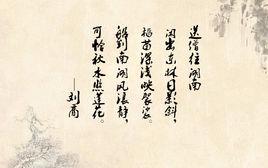 送僧往湖南
闲出东林日影斜，
稻苗深浅映袈裟。
船到南湖风浪静，
可怜秋水照莲花。
——刘商